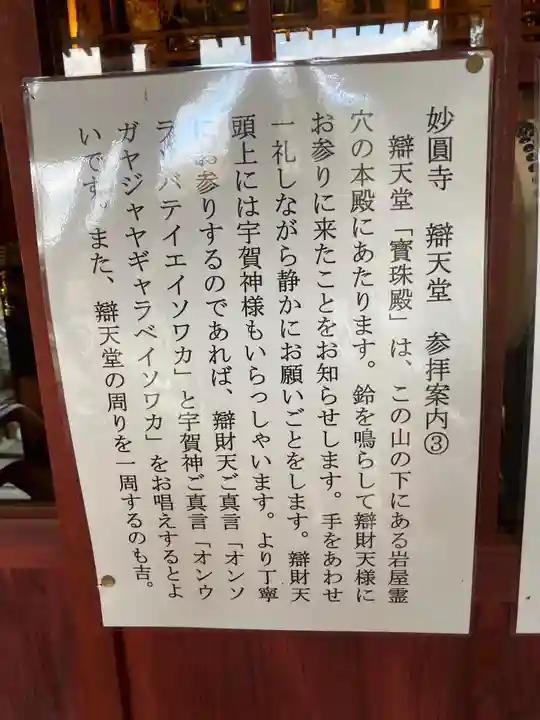 妙圓寺　辯天堂　参拝案内③
辯天堂「寳珠殿」は、この山の下にある岩屋霊
穴の本殿にあたります。鈴を鳴らして辯財天様に
お参りに来たことをお知らせします。手をあわせ
一礼しながら静かにお願いごとをします。辯財天
頭上には宇賀神様もいらっしゃいます。より丁寧
にお参りするのであれば、辯財天ご真言「オンソ
ラソバテイエイソワカ」と宇賀神ご真言「オンウ
ガヤジャヤギャラベイソワカ」をお唱えするとよ
いです。また、辯天堂の周りを一周するのも吉。